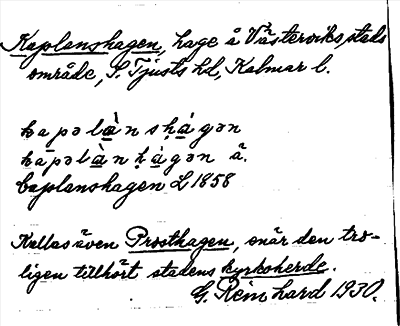 Kaplanshagen, hage å Västerviks stads
område, S. Tjusts hd, Kalmar l.
kapəlànsḥágən
kapəlànḥágən å.
Caplanshagen L 1858
Kallas även Prosthagen, enär den tro-
ligen tillhört stadens kyrkoherde.
G. Reinhard 1930.